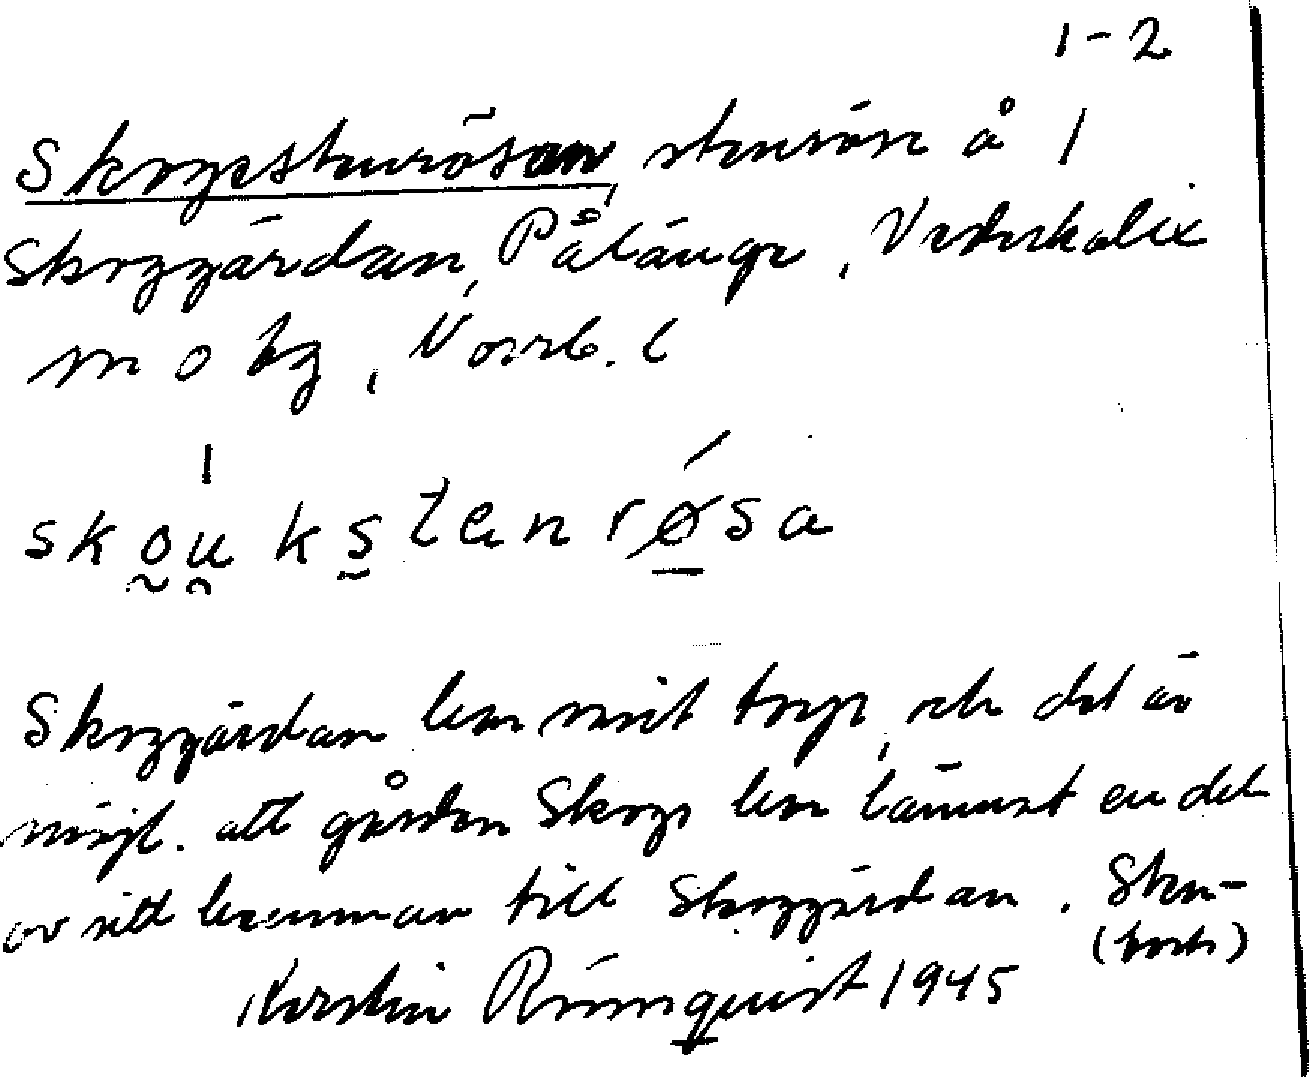 1-2
Skogsstenrösan, stenröse å 1
Skoggärdan, Pålänge, Nederkalix
sn o hg, Norrb. l
skou̯kstenrø̱sa
Skoggärdan har varit torp, och det är
möjl. att gården Skogs har lämnat en del
av sitt namn till Skoggärdan. Sten-
(forts)
Kerstin Rönnquist 1945